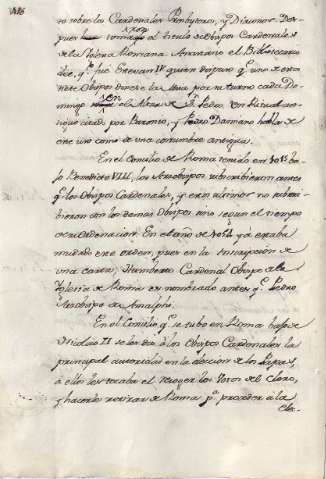 ro sobre los Cardenales Presbyteros, y Diaconos. Des-
pues tomaron el titulo de Obispos Cardenales
de la Yglesia Romana. Anastasio el Bibliotecario
dice, qe. fué Estevan IV quien dispuso qe. uno de estos
siete Obispos dixese la Misa por su turno cada Do-
mingo en el Altar de Sn. Pedro. Un Ritual an-
tiguo citado por Baronio, y Pedro Damiano habla de
este uso como de una costumbre antigua.
En el Concilio de Roma tenido en 1015 ba-
xo Benedicto VIII, los Arzobispos subscribieron antes
qe. los Obispos Cardenales, y estos ultimos no subscri-
bieron con los demas Obispos sino segun el tiempo
de su Ordenacion. En el año de 1054 ya estaba
mudado este orden, pues en la inscripcion de
una carta, Humberto Cardenal Obispo de la
Yglesia de Roma es nombrado antes qe. Pedro
Arzobispo de Amalphi.
En el Concilio qe. se tubo en Roma baxo de
Nicolao II se les dió à los Obispos Cardenales la
principal autoridad en la eleccion de los Papas,
à ellos les tocaba el recoger los Votos del Clero,
y hacerlos retirar de Roma pa. proceder à la
ele-